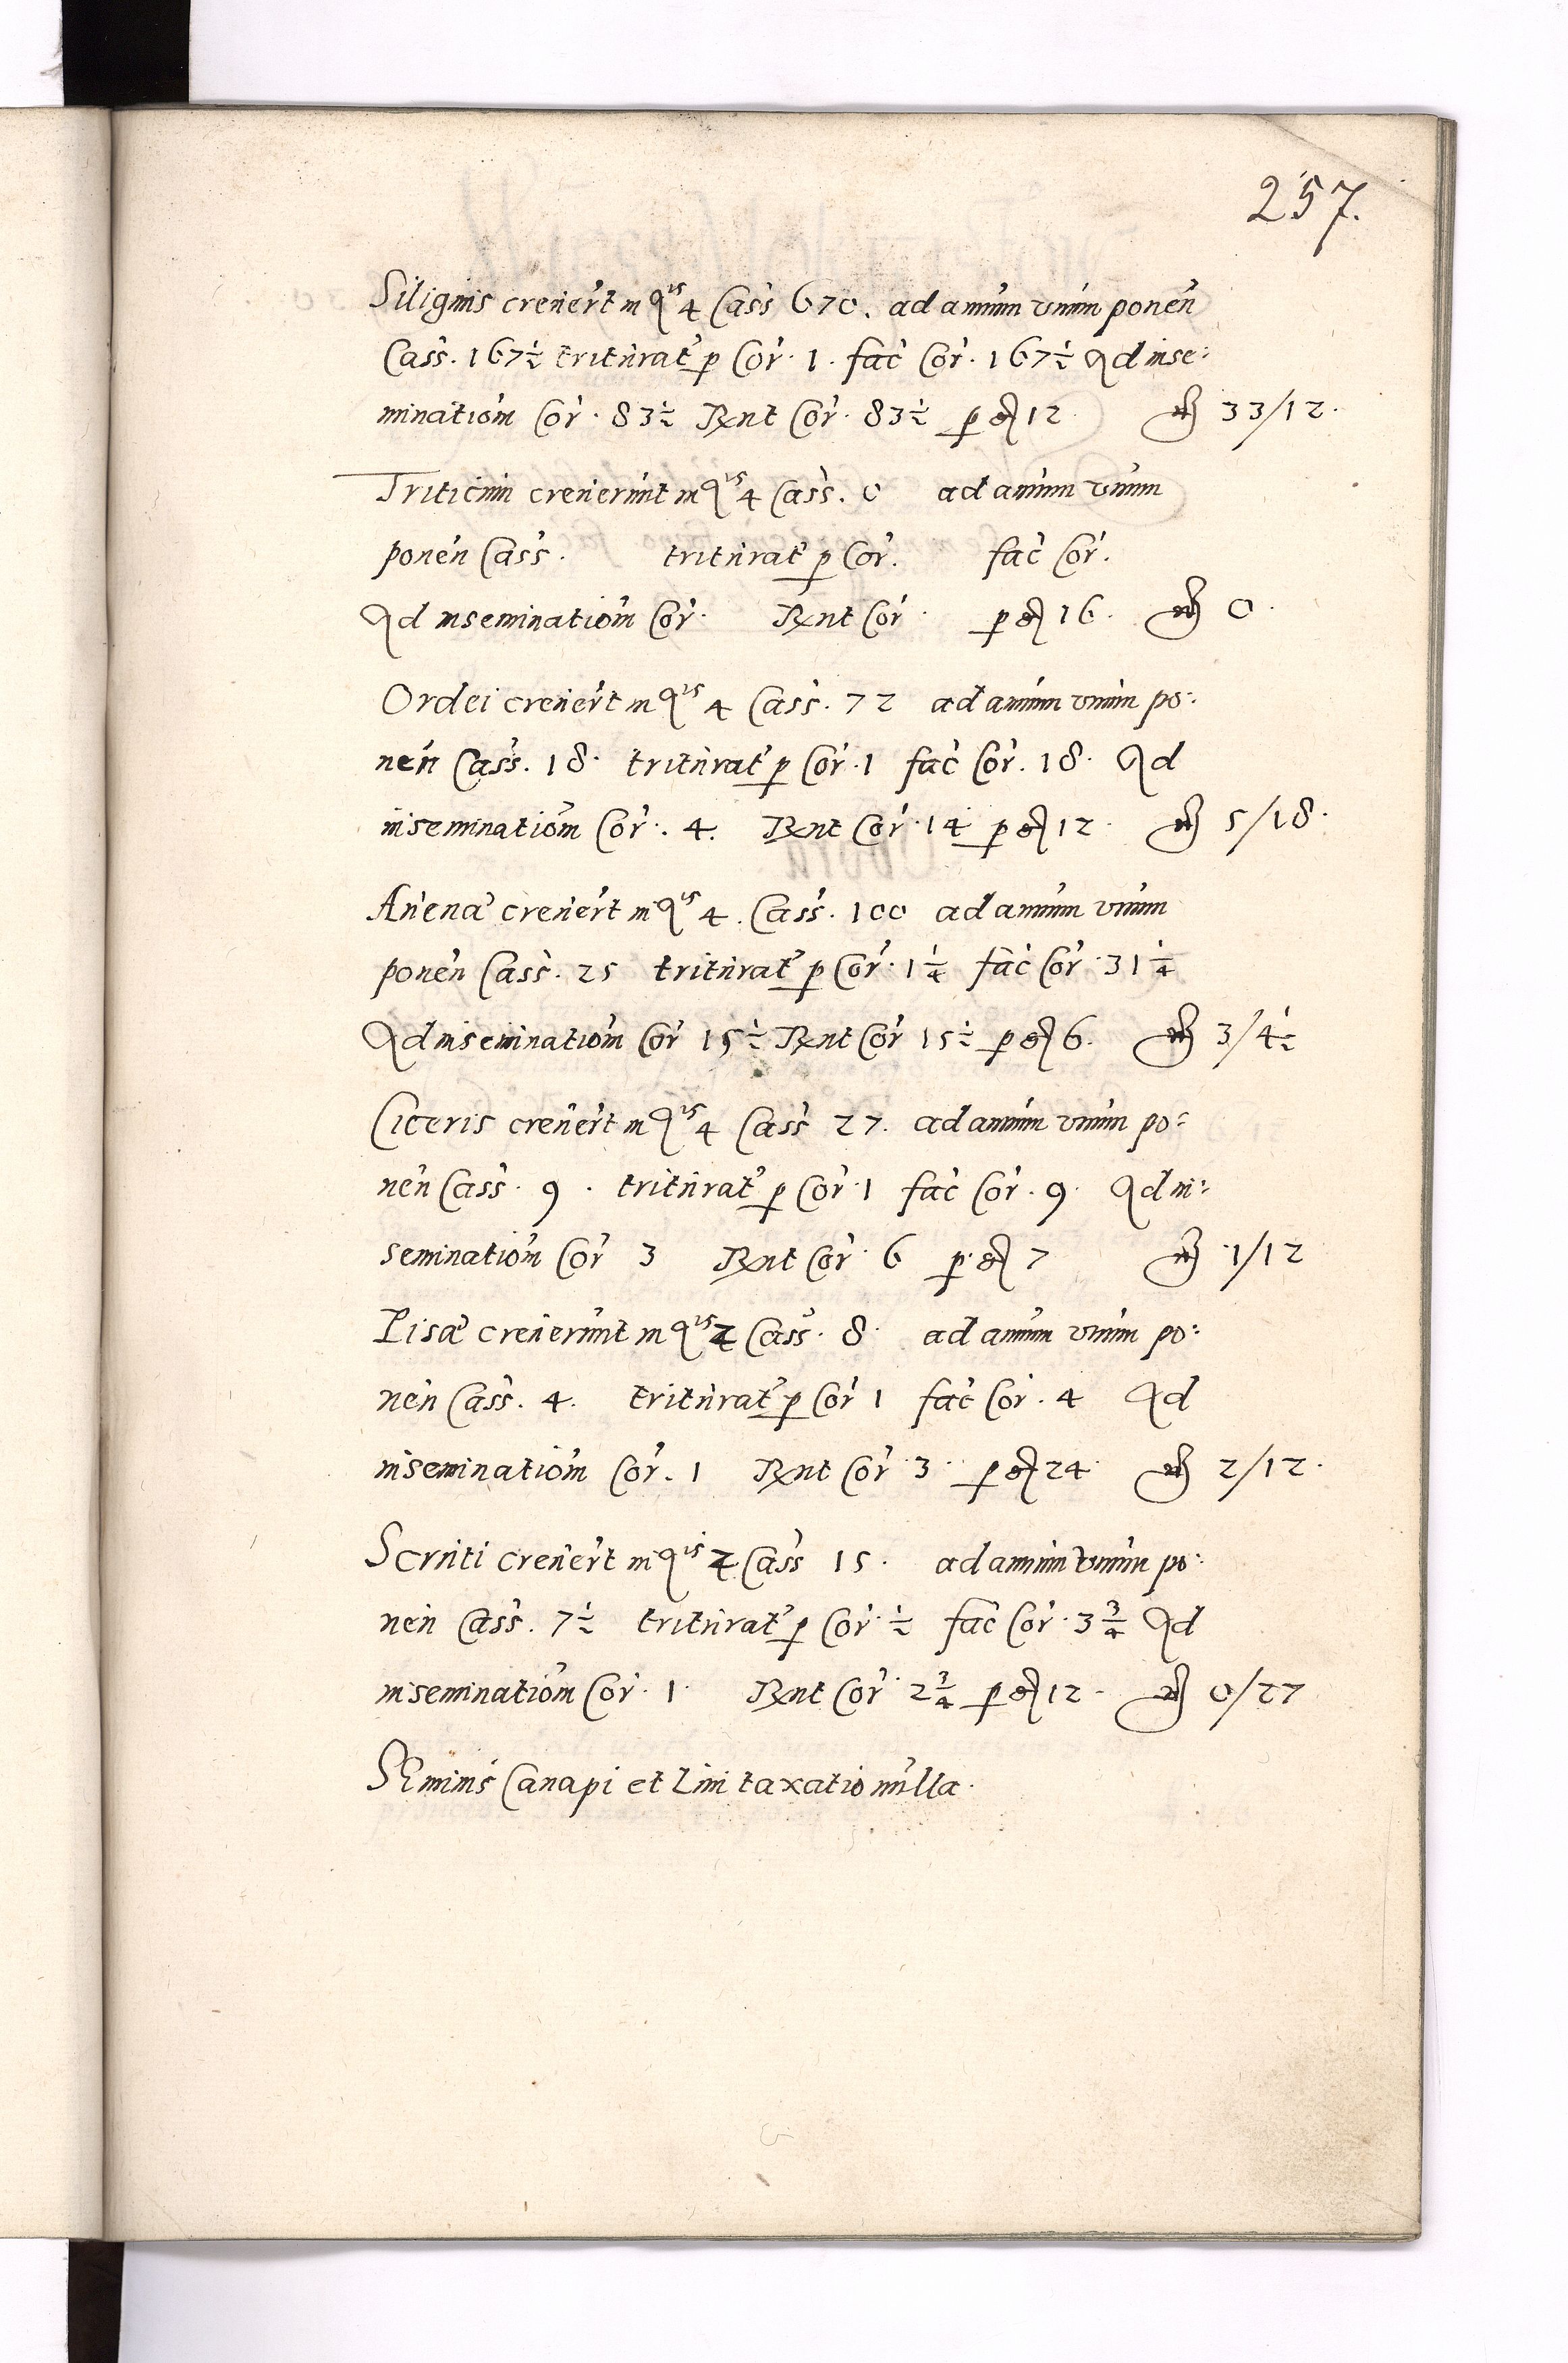 257.
Siliginis creuer̃t in Aⁱˢ 4 Cass̃ 670. ad annum vnum ponen̄
Cass̃. 167½ triturat̃ p Cor̃. 1. fac̃ Cor̃. 167½ Ad inse:
minatiōm Cor̃. 83½ Rxnt Cor̃. 83½ p gr 12 mr 33/12.
Triticum creuerunt in Aⁱˢ 4 Cass̃. 0 ad annum vnum
ponen̄ Cass̃. triturat̃ p Cor̃. fac̃ Cor̃.
Ad inseminatiōm Cor̃. Rxnt Cor̃. p gr 16. mr 0.
Ordei creuer̃t in Aⁱˢ 4 Cass̃. 72 ad annum vnum po:
nen̄ Cass̃. 18. triturat̃ p Cor̃. 1 fac̃ Cor̃. 18. Ad
inseminatiōm Cor̃. 4. Rxnt Cor̃. 14 p gr 12. mr 5/18.
Auenæ creuer̃t in Aⁱˢ 4. Cass̃. 100 ad annum vnum
ponen̄ Cass̃. 25 triturat̃ p Cor̃. 1¼ fac̃ Cor̃. 31¼
Ad inseminatiōm Cor̃ 15½ Rxnt Cor̃ 15½ p gr 6. mr 3/4½
Citeris creuer̃t in Aⁱˢ 4 Cass̃ 27. ad annum vnum po:
nen̄ Cass̃. 9. triturat̃ p Cor̃. 1 fac̃ Cor̃. 9. Ad in:
seminatiōm Cor̃ 3 Rxnt Cor̃. 6 p gr 7 mr 1/12
Pisæ creuerunt in Aⁱˢ 2 Cass̃. 8. ad annum vnum po:
nen̄ Cass̃. 4. triturat̃ p Cor̃ 1 fac̃ Cor̃. 4 Ad
inseminatiōm Cor̃. 1 Rxnt Cor̃. 3. p gr 24. mr 2/12.
Scruti creuer̃t in Aⁱˢ 2 Cass̃ 15. ad annum vnum po:
nen̄ Cass̃. 7½ triturat̃ p Cor̃. ½ fac̃ Cor̃. 3¾ Ad
inseminatiōm Cor̃. 1. Rxnt Cor̃. 2¾ p gr 12. mr 0/27
SEminis Canapi et Lini taxatio nulla.